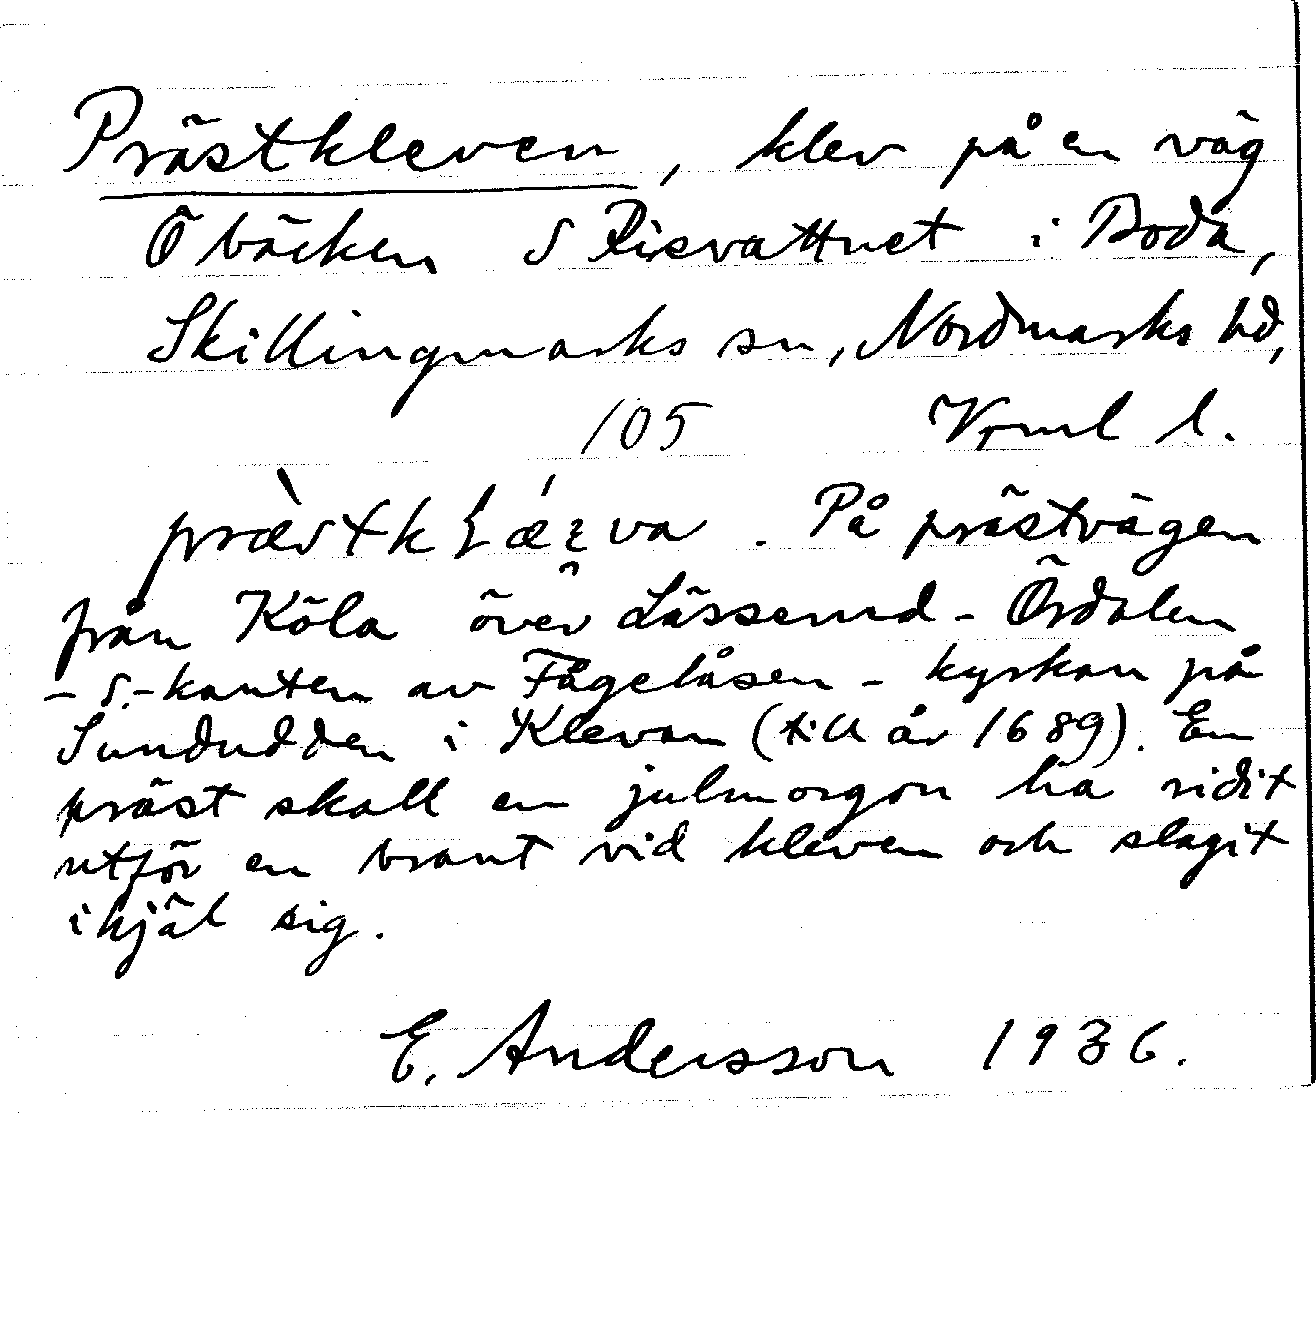 Prästkleven, klev på en väg
Ö bäcken S Risvattnet i Boda,
Skillingmarks sn, Nordmarks hd,
105 Vrml l.
På prästvägen
från Köla över Lässerud - Ördalen
- S.-kanten av Fågelåsen - kyrkan på
Sundudden i Klevan (till år 1689). En
präst skall en julmorgon ha ridit
utför en brant vid kleven och slagit
ihjäl sig.
E. Andersson 1936.